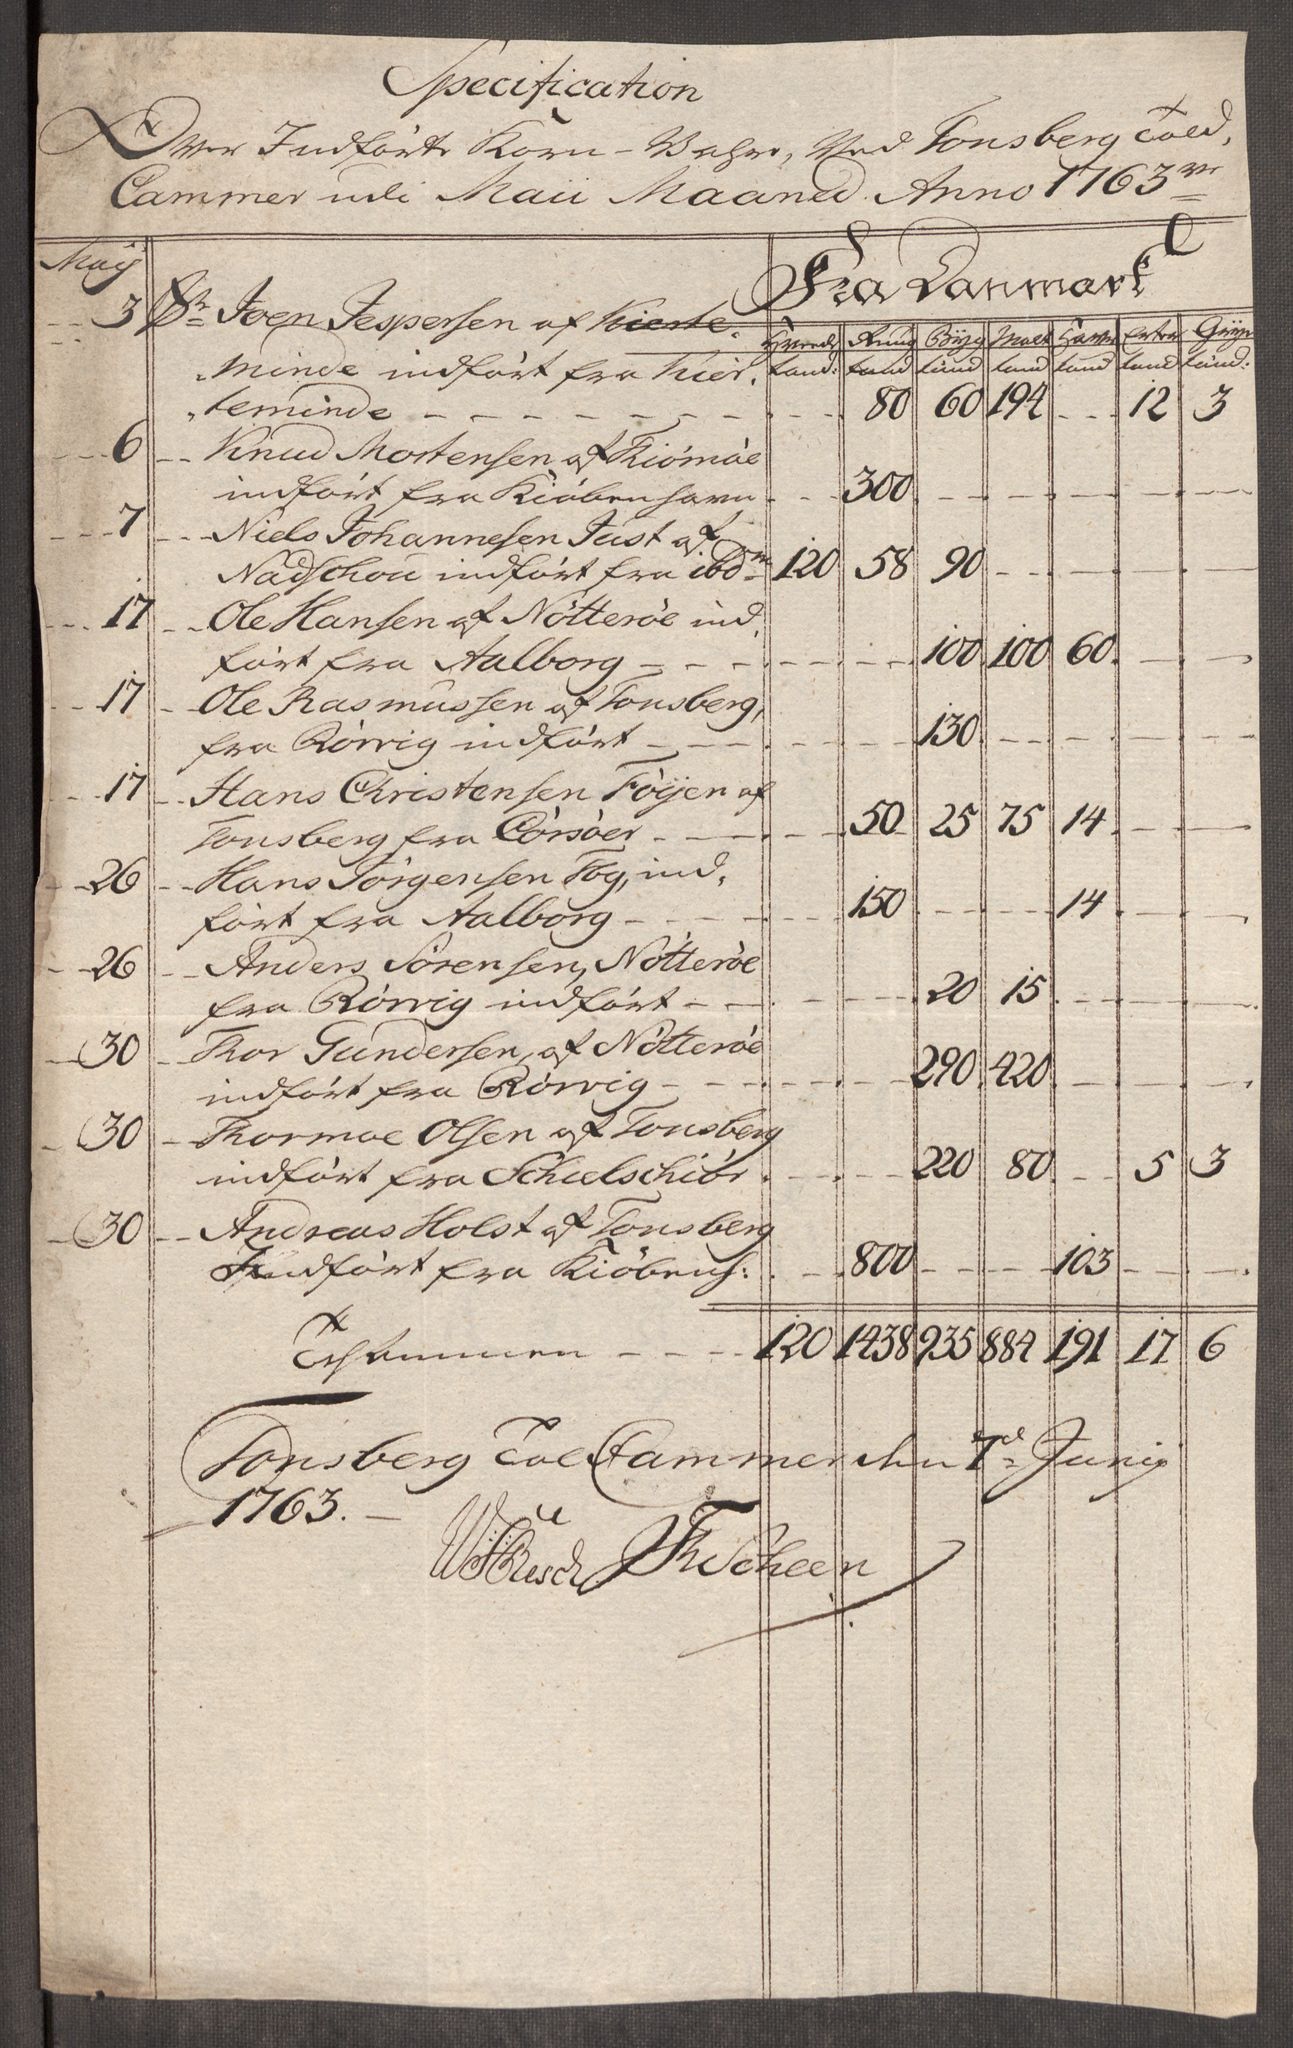 Specification
Over Indförte Korn-Vahre, Ved Tonsberg Told,
Cammer udi Maii Maaned. Anno 1763
May
Fra Danmark
Hvede Rug Byg Malt Havre Erter Gryn
tønd: tønd tønd tønd tønd tønd tønd:
3 Sr Joen Jespersen af Kierte,
minde indført fra Kier,
teminde - - - 80 60 194 - 12 3
6 - Knud Mortensen af Kiömöe
indfört fra Kiöbenhavn - - 300 - - - - -
7 - Niels Johannesen Just af
Nadschou indfört fra ibdm 120 58 90 - - - -
17 - Ole Hansen af Nötteröe ind,
fört fra Aalborg - - - 100 100 60 - -
17 - Ole Rasmussen af Tonsberg,
fra Rörvig indfört - - - 130 - - - -
17 - Hans Christensen Föyen af
Tonsberg fra Corsöer - - 50 25 75 14 - -
26 - Hans Jörgensen Fog, ind,
fört fra Aalborg - - 150 - - 14 - -
26 - Anders Sörensen, Nötteröe
fra Rörvig indfört - - - 20 15 - - -
30 - Thor Gundersen, af Nötteröe
indfört fra Rörvig - - - 290 420 - - -
30 - Thormoe Olsen af Tonsberg
indfört fra Schielschiör - - 220 80 - 5 3
30 - Andreas Holst af Tonsberg
Indfört fra Kiöbenh: - - 800 - - 103 - -
Tilsammen - - - 120 1438 935 884 191 17 6
Tonsberg Told Cammer den 7d Junij
1763. -